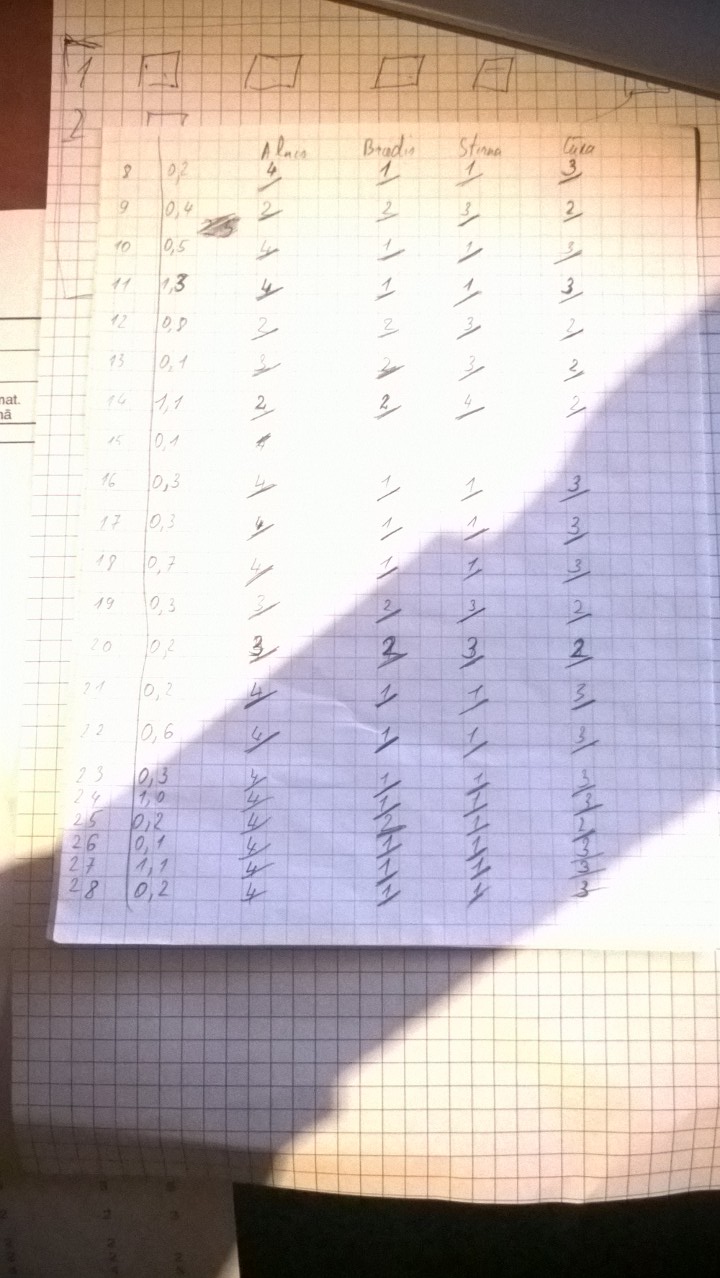 1
2
Alnis Briedis Stirna Cūka
8 0,2 4 1 1 3
9 0,4 2 2 3 2
10 0,5 4 1 1 3
11 1,3 4 1 1 3
12 0,8 2 2 3 2
13 0,1 3 2 3 2
14 1,1 2 2 4 2
15 0,1
16 0,3 4 1 1 3
17 0,3 4 1 1 3
18 0,7 4 1 1 3
19 0,3 3 2 3 2
20 0,2 3 2 3 2
21 0,2 4 1 1 3
22 0,6 4 1 1 3
23 0,3 4 1 1 3
24 1,0 4 1 1 3
25 0,2 4 2 1 2
26 0,1 4 1 1 3
27 1,1 4 1 1 3
28 0,2 4 1 1 3
mat.